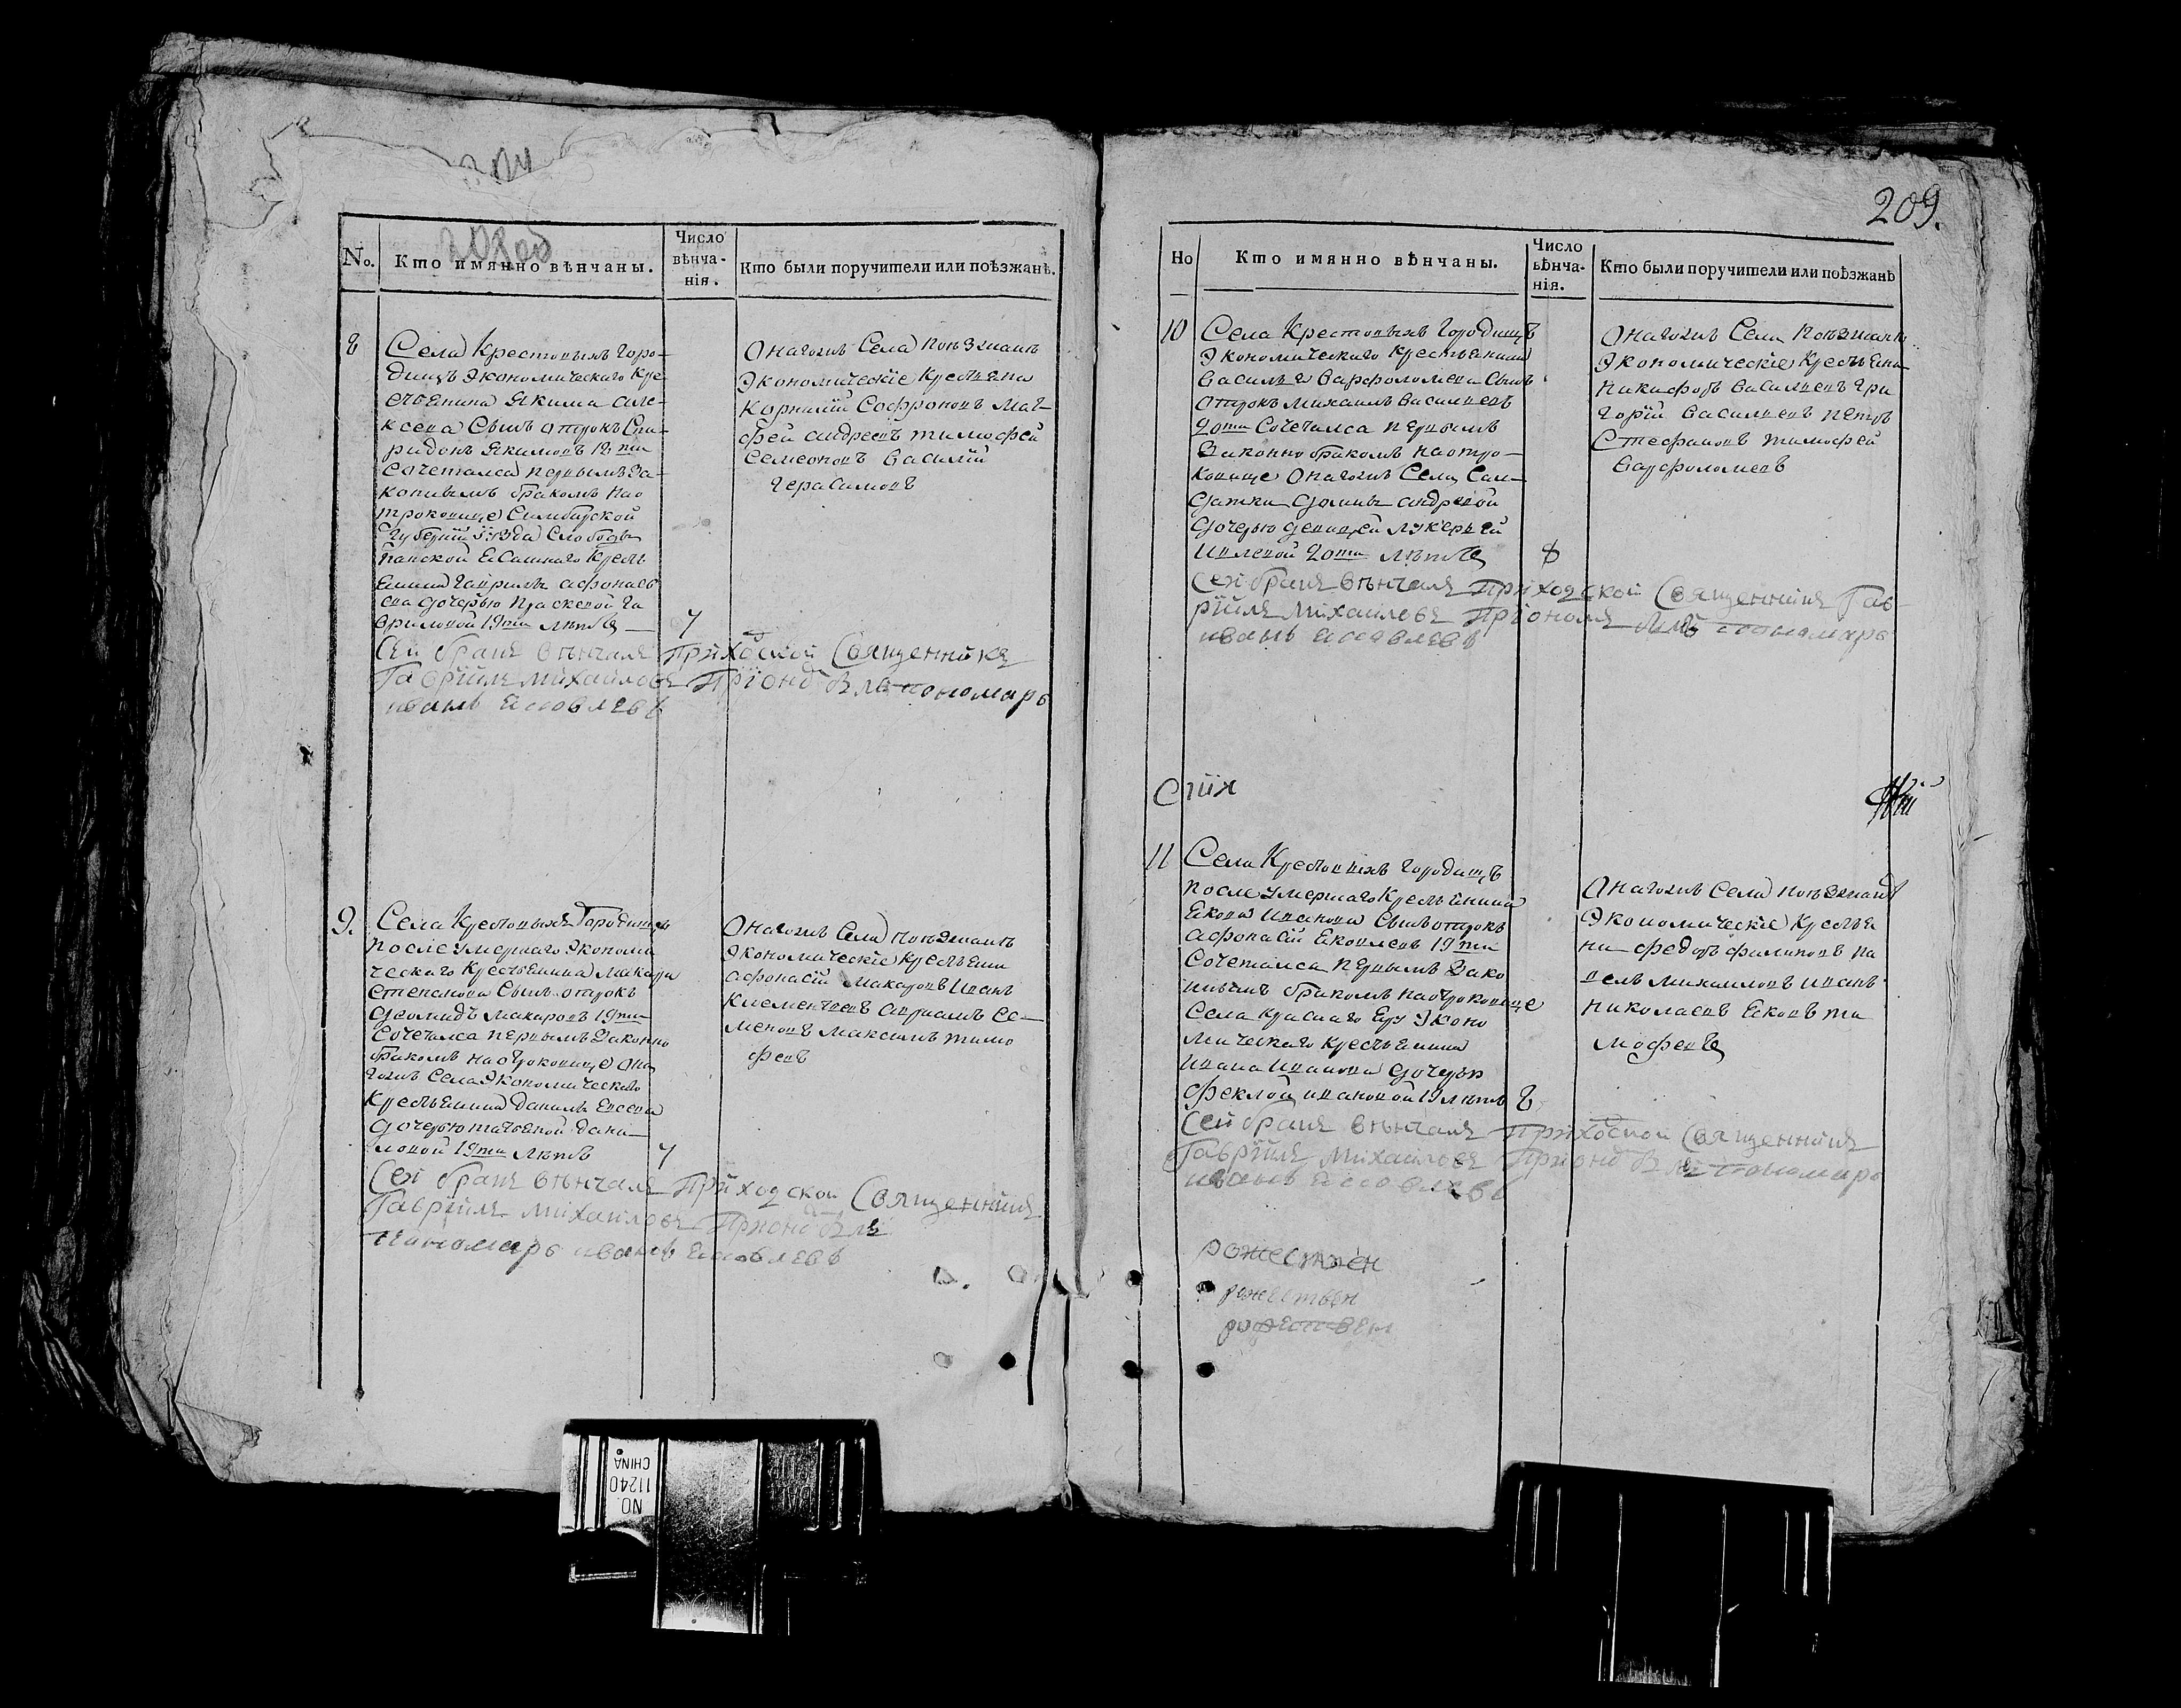 208об
No.
Кто имянно вѣнчаны.
Число вѣнча-нія.
Кто были поручители или поѣзжанѣ.
8
Села Крестовыхъ Горо-
дищъ Экономическаго Кре-
стьянина Якима Але-
ксева Сынъ отрокъ Спи-
ридонъ Якимовъ 18ти
Сочетался первымъ за-
коннымъ бракомъ на о
троковице Симбирской
Губерніи уѣзда Слободы
ясашнаго Кресть
янина Гаврилы Афонась
ева дочерью Праскевой Га
вриловой 19ти лѣтъ
7
Сей бракъ вѣнчалъ Приходской Священникъ
Гаврiилъ Михайловъ При ономъ былъ пономарь
иванъ Яковлевъ
Онагожъ Села поезжанъ
Экономическіе Крестьяна
Корнилій Софроновъ Мат-
фей андреевъ тимофей
Семеоновъ Василій
Герасимовъ
9.
Села Крестовыхъ Городищъ
после умершаго Экономи
ческаго Крестьянина Макара
Степанова Сынъ отрокъ
Деомидъ Макаровъ 19ти
Сочетался первымъ Законно
бракомъ на отроковице Она
гожъ Села Экономическаго
Крестьянина Данилы Евсева
дочерью татьяной Дани-
ловой 19ти лѣтъ
7
Сей бракъ вѣнчалъ Приходской Священникъ
Гаврiилъ Михайловъ При ономъ былъ
пономарь иванъ Яковлевъ
Онагожъ Села поезжанъ
Экономическіе Крестьяни
афонасій Макаровъ Иванъ
Клементьевъ Се-
меновъ Максимъ тимо
феевъ
209.
Но
Кто имянно вѣнчаны.
Число вѣнча-нія.
Кто были поручители или поѣзжанѣ
10
Села Крестовыхъ Городищъ
Экономическаго Крестьянина
Василья Варфоломеева Сынъ
отрокъ Михаилъ Васильевъ
20ти Сочетался первымъ
Законно бракомъ на отро-
ковице Онагожъ Села Сол-
датки Домны андревой
дочерью девицей лукерьей
Ивлевой 20ти лѣтъ
8
Сей бракъ вѣнчалъ Приходской Священникъ Гав-
рiилъ Михайловъ При ономъ былъ пономарь
иванъ Яковлевъ
Онагожъ Села Поезжанъ
Экономическіе Крестьяна
Никифоръ Васильевъ Гри
горій Васильевъ Петръ
Стефановъ тимофей
Варфоломеевъ
11
Села Крестовыхъ Городищъ
после умершаго Крестьянина
Якова Иванова Сынъ отрокъ
афонасій Яковлевъ 19ти
Сочетался первымъ Зако
ннымъ бракомъ на отроковице
Села Краснаго Яру Эконо
мическаго Крестьянина
Ивана Иванова дочерью
феклой ивановой 19 лѣтъ
8
Сей бракъ вѣнчалъ Приходской Священникъ
Гаврiилъ Михайловъ При ономъ былъ пономарь
иванъ Яковлевъ
Онагожъ Села поезжанъ
Экономическіе Крестья
ни федоръ филиповъ Па
велъ Михаиловъ иванъ
Николаевъ Яковъ ти
мофеевъ
рожествен
рожествен
рожествен
NO.
11240
CHINA